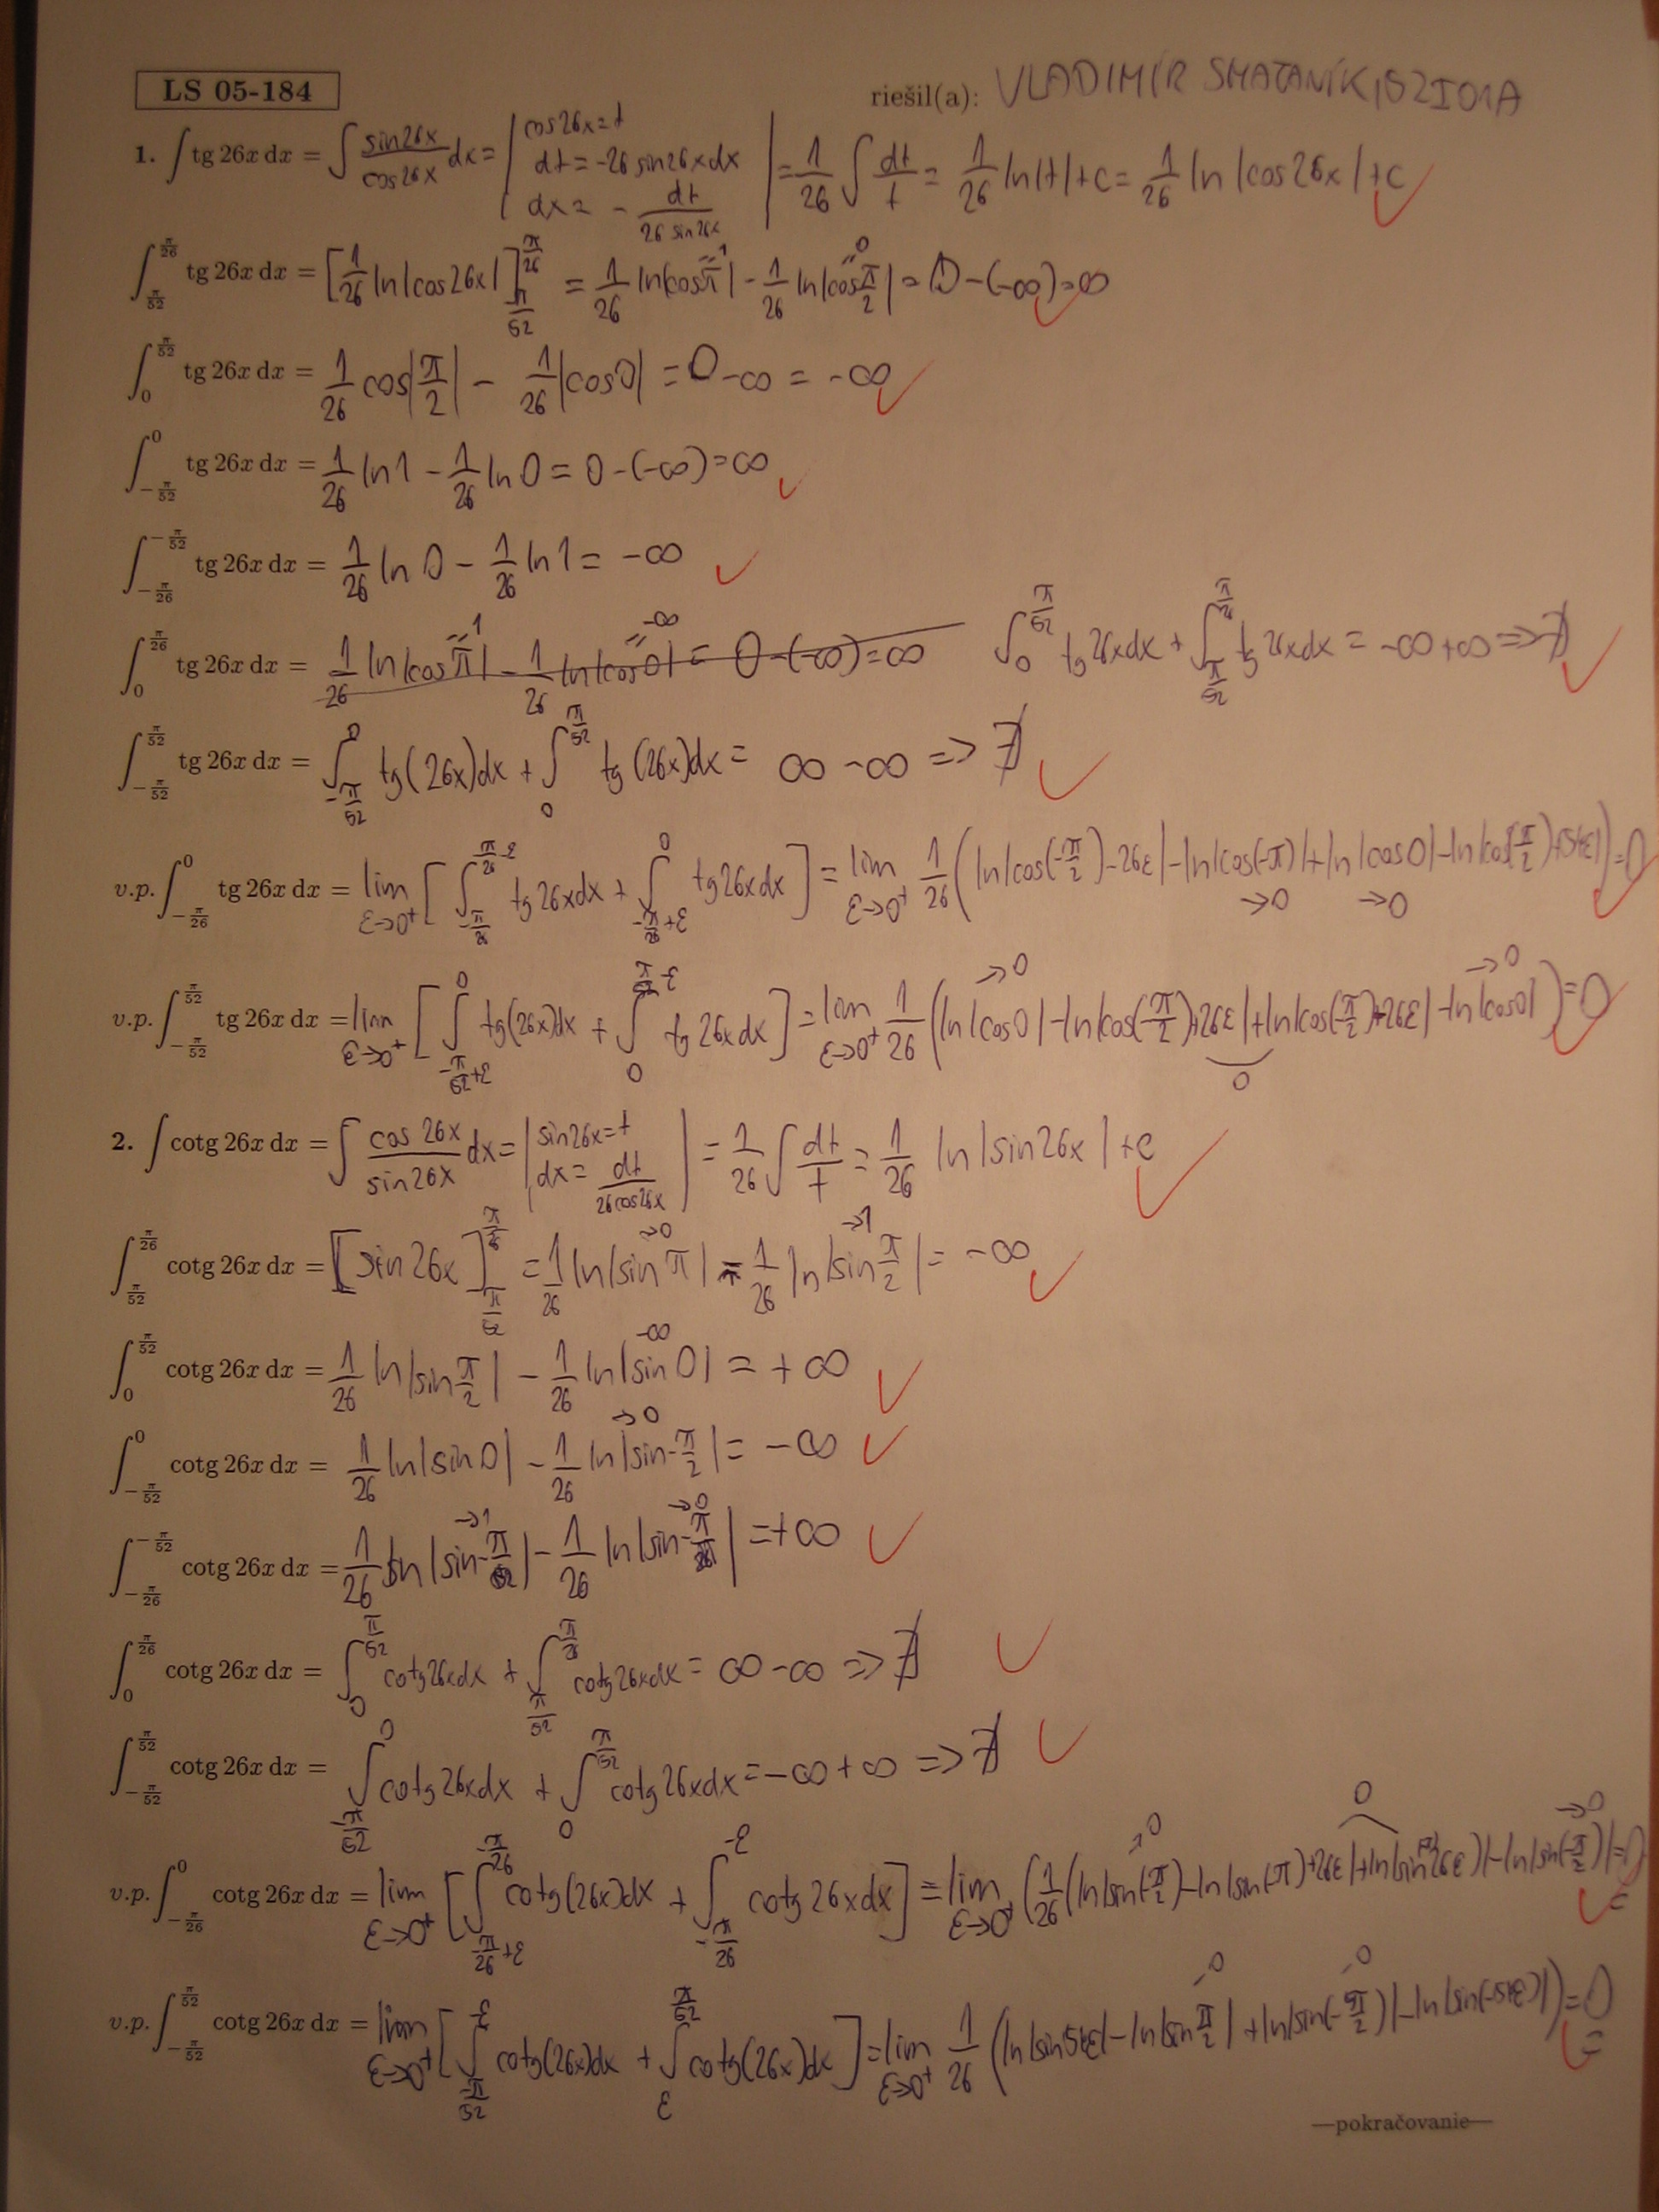 LS 05-184
riešil(a): VLADIMÍR SMATANÍK, 5ZI01A
1. ∫ tg 26x dx = ∫ sin26x/cos26x dx = | cos26x = t, dt = -26 sin26x dx, dx = - dt/(26 sin 26x) | = 1/26 ∫ dt/t = 1/26 ln|t| + c = 1/26 ln |cos 26x| + c
∫_{π/52}^{π/26} tg 26x dx = [1/26 ln|cos26x|]_{π/52}^{π/26} = 1/26 ln|cos π| - 1/26 ln|cos π/2| = 0 - (-∞) = ∞
∫_0^{π/52} tg 26x dx = 1/26 cos|π/2| - 1/26 |cos0| = 0 - ∞ = -∞
∫_{-π/52}^0 tg 26x dx = 1/26 ln1 - 1/26 ln 0 = 0 - (-∞) = ∞
∫_{-π/26}^{-π/52} tg 26x dx = 1/26 ln 0 - 1/26 ln 1 = -∞
∫_0^{π/26} tg 26x dx = 1/26 ln|cos π| - 1/26 ln|cos 0| = 0 - (-∞) = ∞ ∫_0^{π/52} tg 26x dx + ∫_{π/52}^{π/26} tg 26x dx = -∞ + ∞ => ∄
∫_{-π/52}^{π/52} tg 26x dx = ∫_{-π/52}^0 tg(26x)dx + ∫_0^{π/52} tg(26x)dx = ∞ - ∞ => ∄
v.p. ∫_{-π/26}^0 tg 26x dx = lim_{ε→0⁺} [∫_{-π/26}^{-π/26-ε} tg 26x dx + ∫_{-π/26+ε}^0 tg 26x dx] = lim_{ε→0⁺} 1/26 (ln|cos(-π/2)-26ε| - ln|cos(-π)| + ln|cos0| - ln|cos(π/2) = 0
v.p. ∫_{-π/52}^{π/52} tg 26x dx = lim_{ε→0⁺} [∫_{-π/52+ε}^0 tg(26x)dx + ∫_0^{π/52-ε} tg 26x dx] = lim_{ε→0⁺} 1/26 (ln|cos0| - ln|cos(-π/2)+26ε| + ln|cos(π/2)+26ε| - ln|cos0|) = 0
2. ∫ cotg 26x dx = ∫ cos 26x/sin 26x dx = | sin26x = t, dx = dt/(26cos26x) | = 1/26 ∫ dt/t = 1/26 ln |sin26x| + c
∫_{π/52}^{π/26} cotg 26x dx = [sin 26x]_{π/52}^{π/26} = 1/26 ln|sin π| - 1/26 ln|sin π/2| = -∞
∫_0^{π/52} cotg 26x dx = 1/26 ln|sin π/2| - 1/26 ln|sin 0| = +∞
∫_{-π/52}^0 cotg 26x dx = 1/26 ln|sin 0| - 1/26 ln|sin -π/2| = -∞
∫_{-π/26}^{-π/52} cotg 26x dx = 1/26 ln |sin -π/52| - 1/26 ln|sin -π/26| = +∞
∫_0^{π/26} cotg 26x dx = ∫_0^{π/52} cotg26xdx + ∫_{π/52}^{π/26} cotg26xdx = ∞ - ∞ => ∄
∫_{-π/52}^{π/52} cotg 26x dx = ∫_{-π/52}^0 cotg 26xdx + ∫_0^{π/52} cotg26xdx = -∞ + ∞ => ∄
v.p. ∫_{-π/26}^0 cotg 26x dx = lim_{ε→0⁺} [∫_{-π/26+ε}^{-π/26} cotg(26x)dx + ∫_{-π/26}^{-ε} cotg 26xdx] = lim_{ε→0⁺} (1/26 (ln|sin(-π/2) - ln|sin(-π)+26ε| + ln|sin 26ε)| - ln|sin(-π/2)| = 0
v.p. ∫_{-π/52}^{π/52} cotg 26x dx = lim_{ε→0⁺} [∫_{-π/52}^{-ε} cotg(26x)dx + ∫_ε^{π/52} cotg(26x)dx] = lim_{ε→0⁺} 1/26 (ln|sin - ln|sin π/2| + ln|sin(-π/2)| - ln|sin = 0
—pokračovanie—